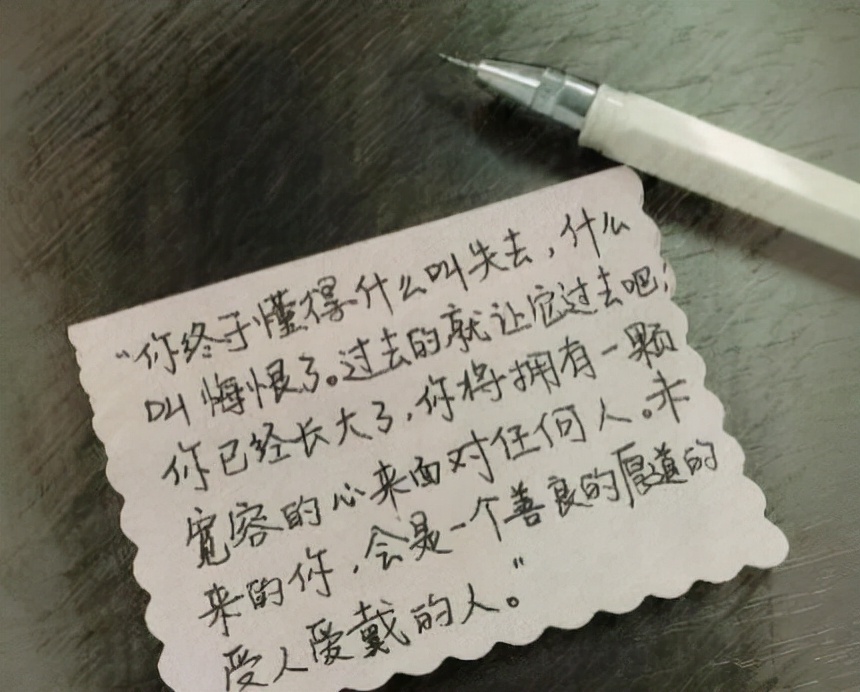 “你终于懂得什么叫失去，什么
叫悔恨了。过去的就让它过去吧；
你已经长大了，你将拥有一颗
宽容的心来面对任何人。未
来的你，会是一个善良的厚道的
受人爱戴的人。”